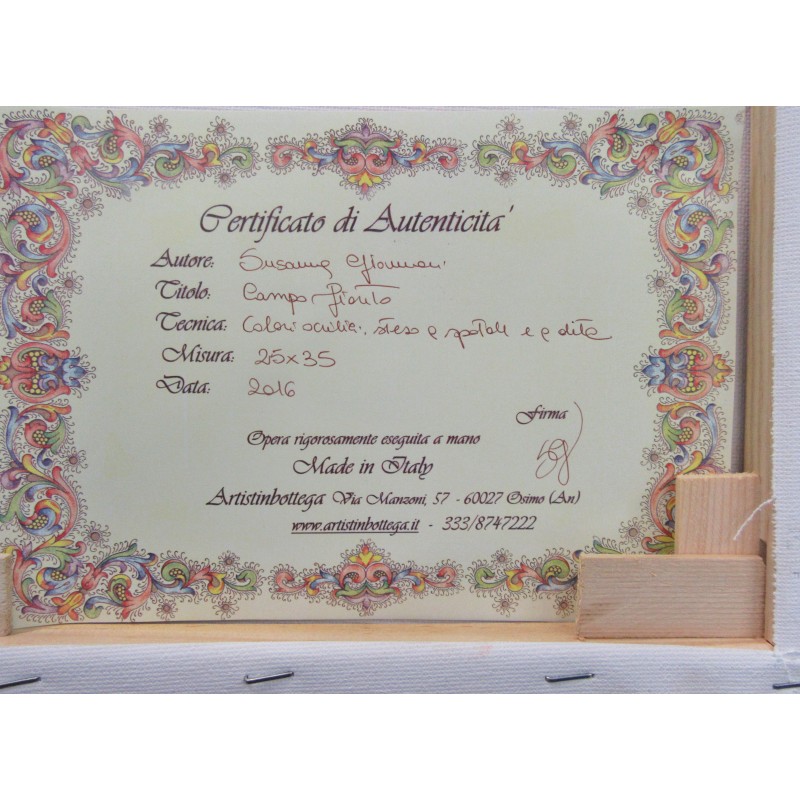 Certificato di Autenticita'
Autore: Susanna
Titolo: Campo fiorito
Tecnica: Colori acrilici, steso a spatola e a dita
Misura: 25x35
Data: 2016
Firma
Opera rigorosamente eseguita a mano
Made in Italy
Artistinbottega Via Manzoni, 57 - 60027 Osimo (An)
www.artistinbottega.it - 333/8747222